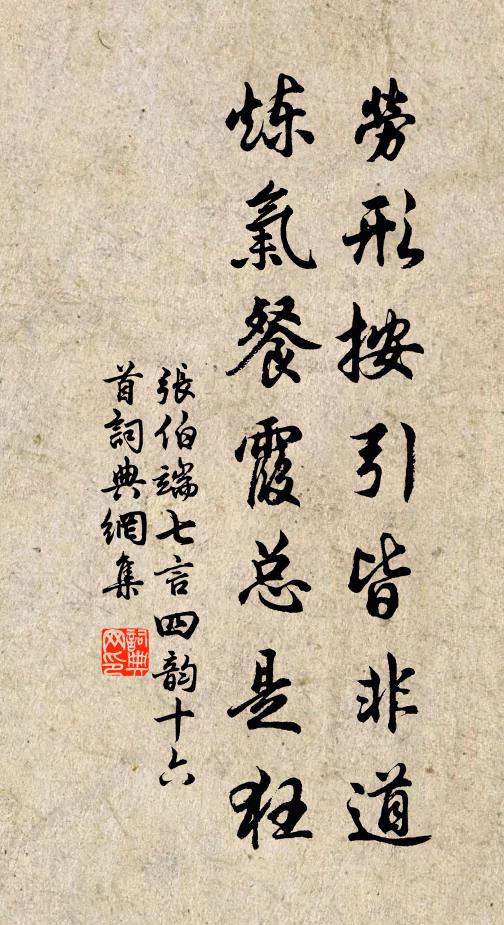 勞形按引皆非道
炼氣餐霞总是狂
張伯端七言四韵十六
首詞典網集
詞典网印